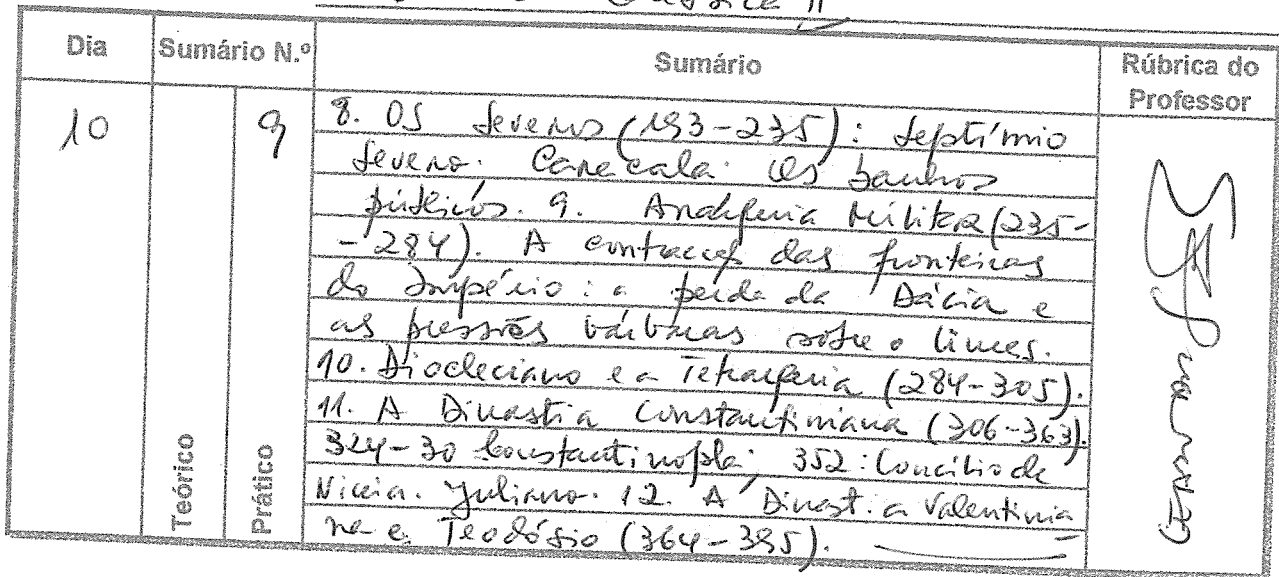 Dia
Sumário N.º
Sumário
Rúbrica do
Professor
10
9
8. Os Severos (193-235): Septímio
Severo. Caracala. Os banhos
públicos. 9. Anarquia Militar (235-
-284). A contracção das fronteiras
do Império: a perda da Dácia e
as pressões bárbaras sobre o limes.
10. Diocleciano e a Tetrarquia (284-305).
11. A Dinastia Constantiniana (306-363).
324-30 Constantinopla; 352: Concílio de
Niceia. Juliano. 12. A Dinastia Valentinia
na e Teodósio (364-395).
Teórico
Prático